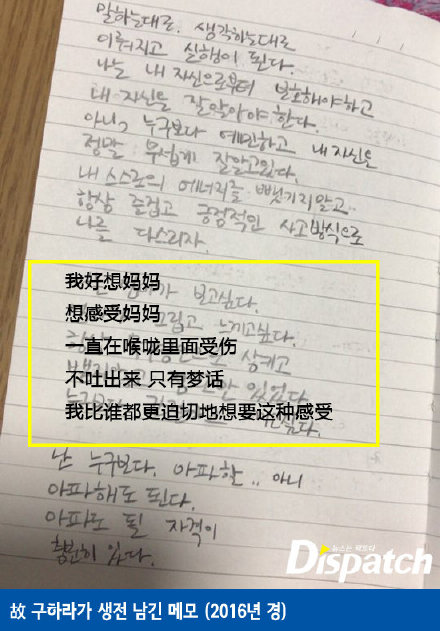 말하는대로. 생각하는대로
이뤄지고 실행이 된다.
나는 내 자신으로부터 보호해야하고
내 자신을 잘 알아야 한다.
아니, 누구보다 예민하고 내 자신은
정말 무섭게 잘알고있다.
내 스스로의 에너지를 뺏기지말고..
항상 즐겁고 긍정적인 사고방식으로
나를 다스리자.
我好想妈妈
보고싶다.
想感受妈妈
그립고 느끼고싶다.
一直在喉咙里面受伤
삼키고
不吐出来 只有梦话
있었다.
我比谁都更迫切地想要这种感受
난 누구보다. 아파할.. 아니
아파해도 된다.
아파도 될 자격이
충분히 있다.
뉴스는 팩트다
Dispatch
故 구하라가 생전 남긴 메모 (2016년 경)